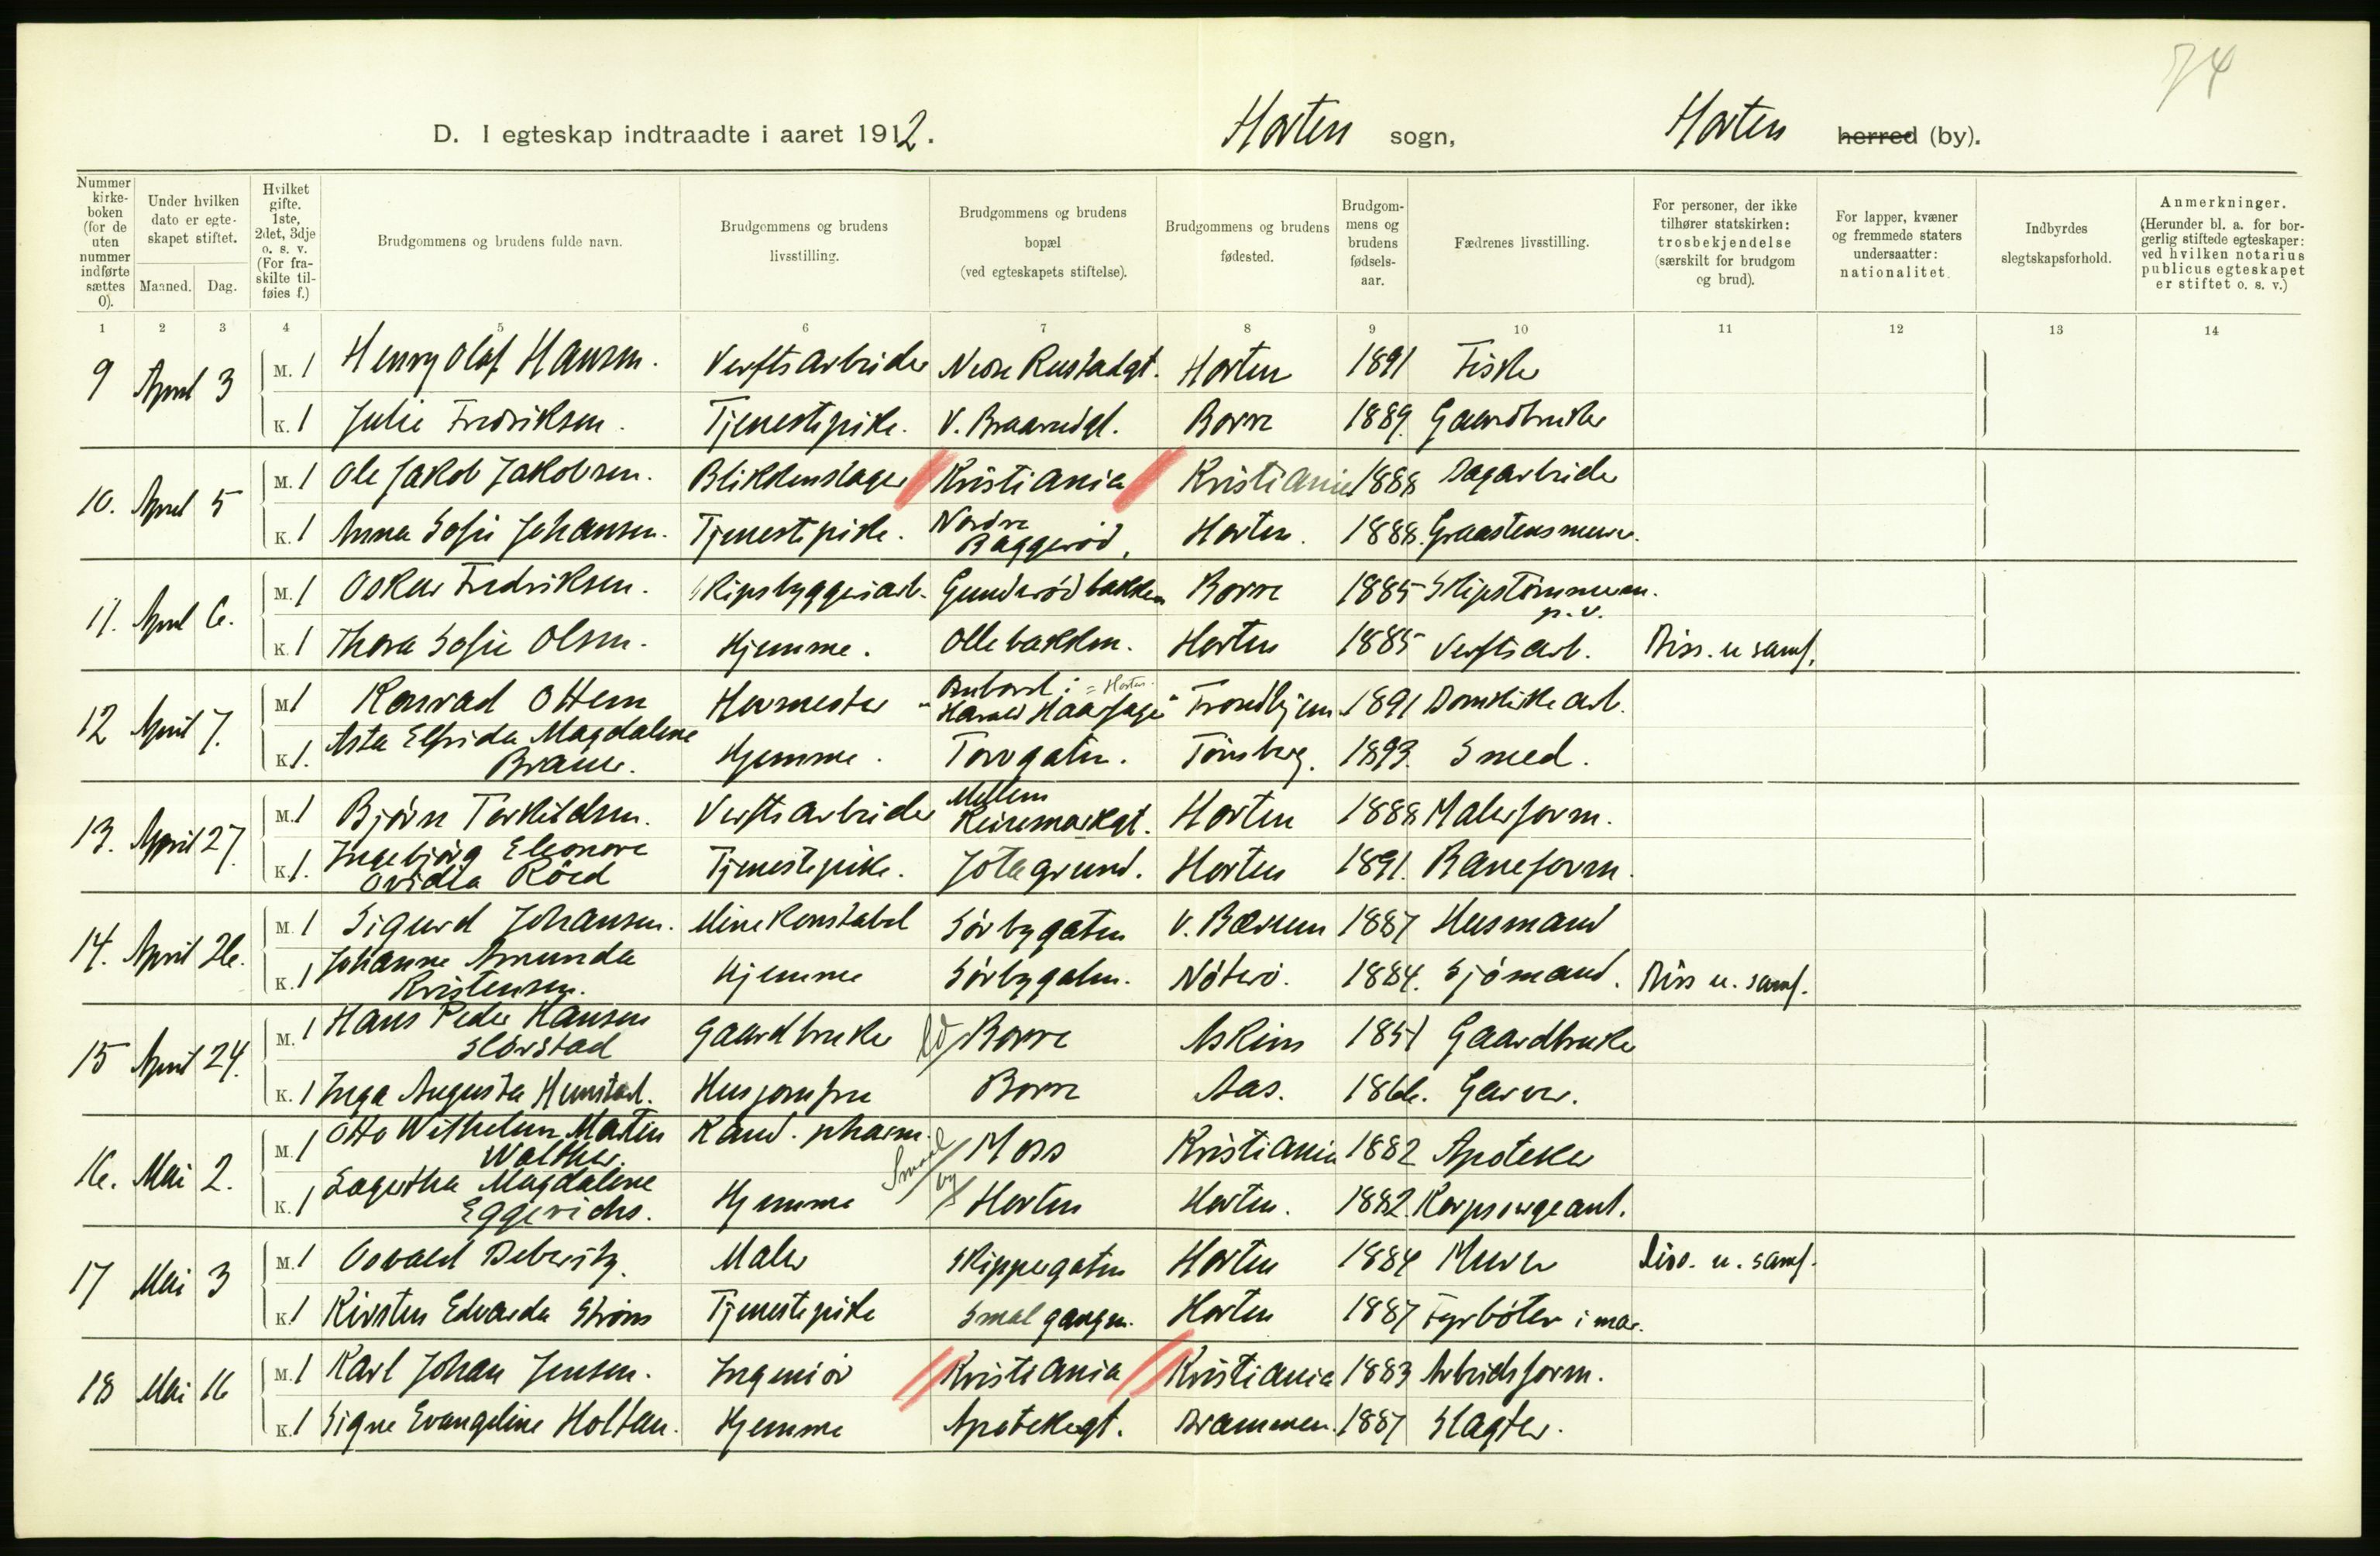 74
D. I egteskap indtraadte i aaret 1912. Horten sogn, Horten herred (by).
Nummer kirke-boken (for de uten nummer indførte sættes 0).
Under hvilken dato er egte-skapet stiftet.
Maaned. Dag.
Hvilket gifte. 1ste, 2det, 3dje o. s. v. (For fra-skilte til-føies f.)
Brudgommens og brudens fulde navn.
Brudgommens og brudens livsstilling.
Brudgommens og brudens bopæl (ved egteskapets stiftelse).
Brudgommens og brudens fødested.
Brudgom-mens og brudens fødsels-aar.
Fædrenes livsstilling.
For personer, der ikke tilhører statskirken: trosbekjendelse (særskilt for brudgom og brud).
For lapper, kvæner og fremmede staters undersaatter: nationalitet.
Indbyrdes slegtskapsforhold.
Anmerkninger. (Herunder bl. a. for bor-gerlig stiftede egteskaper: ved hvilken notarius publicus egteskapet er stiftet o. s. v.)
1 2 3 4 5 6 7 8 9 10 11 12 13 14
9 April 3 M. 1 Henry Olaf Hansen. Verftsarbeider Nedre Rustadgt. Horten 1891 Fisker
K. 1 Julie Fredriksen. Tjenestepike. V. Braarudgt. Borre 1889. Gaardbruker
10. April 5 M. 1 Ole Jakob Jakobsen. Blikkenslager Kristiania Kristiania 1888 Dagarbeider
K. 1 Anna Sofie Johansen. Tjenestepike. Nordre Baggerød. Horten. 1888. Graastensmurer.
11. April 6. M. 1 Oskar Fredriksen. Skipsbyggeriarb. Gunderødbakken Borre 1885 Skipstømmerm. p.v.
K. 1 Thora Sofie Olsen. Hjemme. Ollebakken. Horten 1885 Verftsarb. Diss. u samf.
12 April 7. M 1 Konrad Ottem Hovmester Ombord i = Horten "Harald Haarfagre" Trondhjem 1891 Domkirkearb.
K 1. Asta Elfrida Magdalene Brauer. Hjemme. Torvgaten. Tønsberg. 1893. Smed.
13. April 27. M. 1 Bjørn Torkildsen. Verftsarbeider Mellem Keisemarkgt. Horten 1888 Malerform.
K. 1. Ingebjørg Eleonore Ovidia Röed Tjenestepike. Jotegrund. Horten 1891. Baneform.
14. April 26. M. 1 Sigurd Johansen. Minekonstabel Sørbygaten V. Bærum 1887 Husmand
K. 1 Johanne Amunda Kristensen. Hjemme Sørbygaten. Nøterø. 1884. Sjømand. Diss u. samf.
15 April 24. M. 1 Hans Peder Hansen Slörstad Gaardbruker Ld Borre Askim 1851 Gaardbruker
K. 1 Inga Augusta Hunstad. Husjomfru Borre Aas. 1866. Garver.
16. Mai 2. M. 1 Otto Wilhelm Martin Walther. Kand. pharm. Smaal Moss Kristiania 1882 Apoteker
K. 1 Lagertha Magdalene Eggerichs. Hjemme by Horten Horten. 1882. Korpsersergeant.
17 Mai 3 M. 1 Osvald Deberitz. Maler Skippergaten Horten 1884 Murer Diss. u. samf.
K. 1 Kirsten Edvarda Ström Tjenestepike Smalgangen. Horten 1887 Fyrbøter i mar.
18 Mai 16 M. 1 Karl Johan Jensen. Ingeniør Kristiania Kristiania 1883 Arbeidsform.
K. 1 Signe Evangeline Holtan. Hjemme Apotekergt. Drammen. 1887 Slagter.